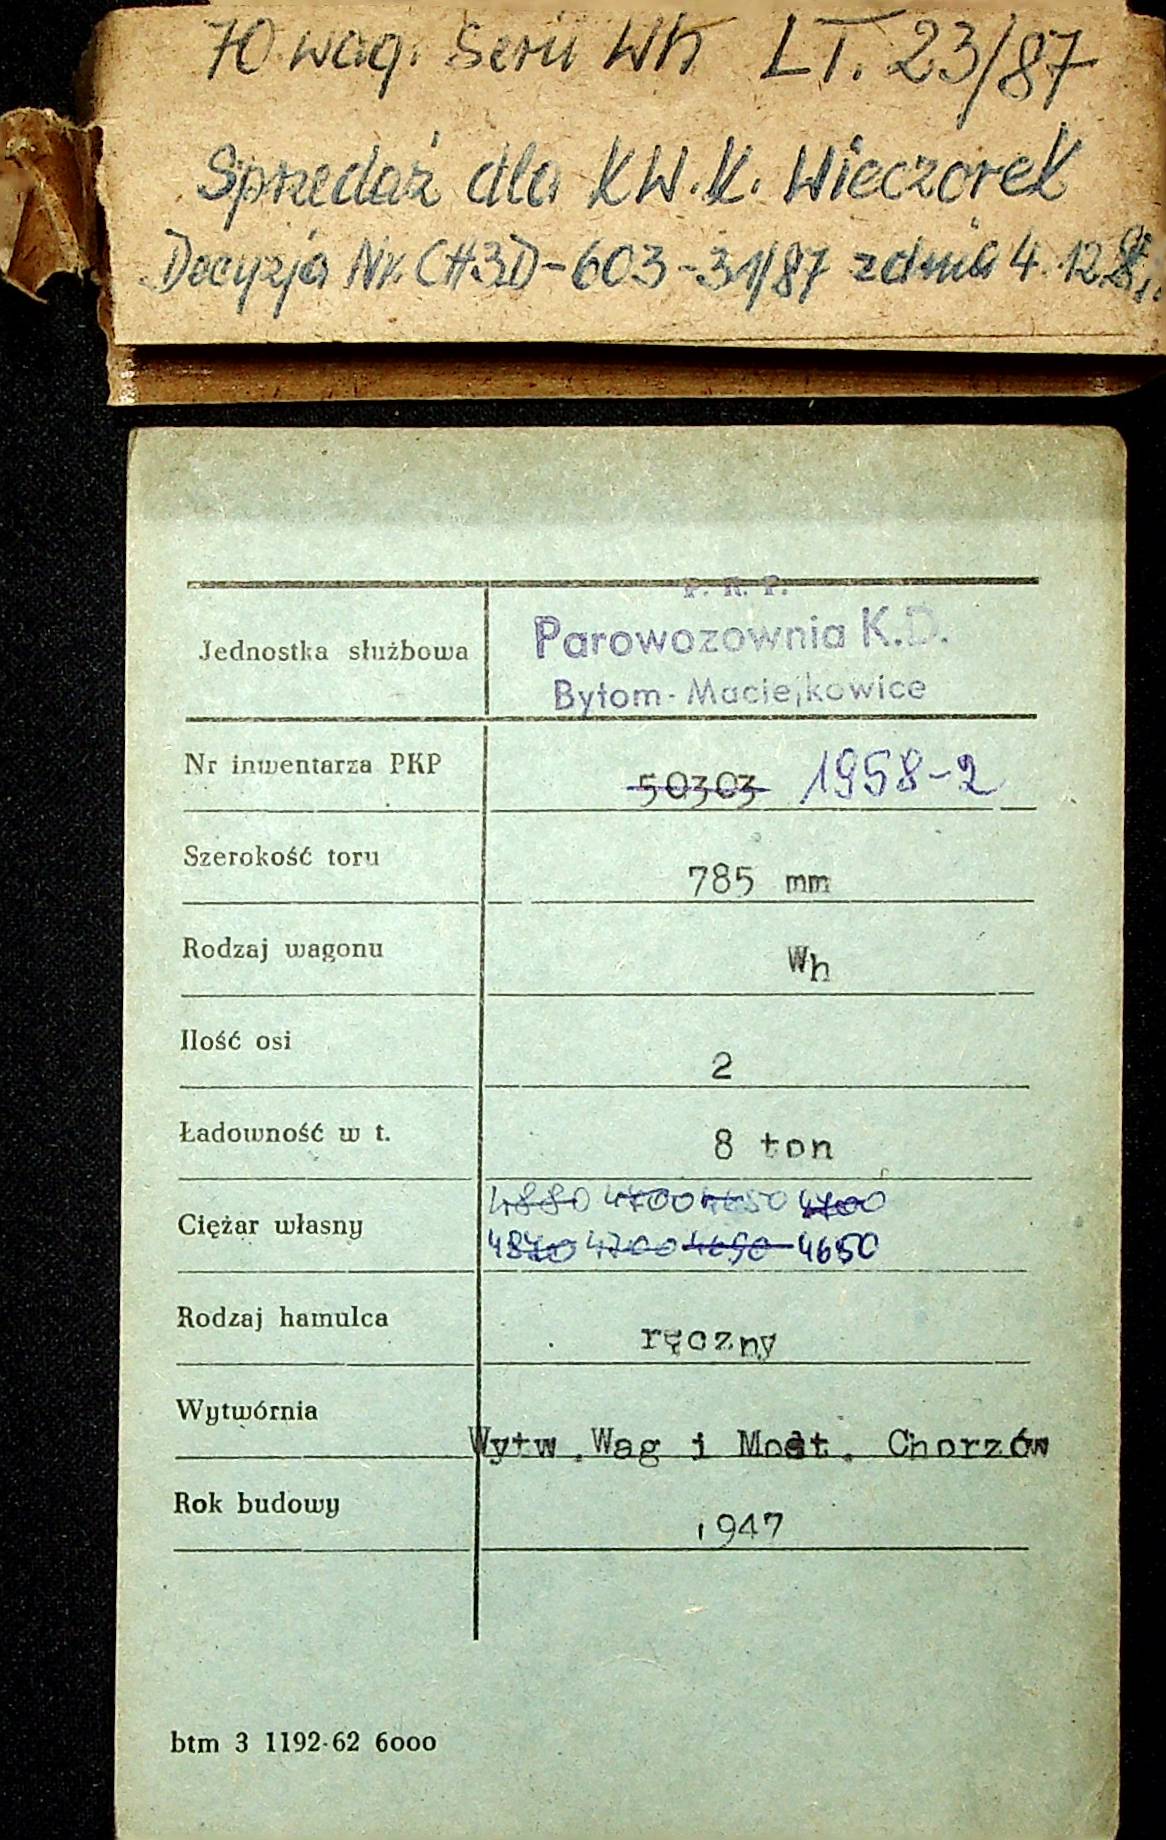 70 wag. Serii Wh LT. 23/87
Sprzedaż dla KW.K. Wieczorek
Decyzja Nr. CH3D-603-31/87 z dnia 4.12.
P. K. P.
Parowozownia K.D.
Bytom-Maciejkowice
Jednostka służbowa
Nr inwentarza PKP 50303 1958-2
Szerokość toru 785 mm
Rodzaj wagonu Wh
Ilość osi 2
Ładowność w t. 8 ton
4880 4700 4650 4700
Ciężar własny
4840 4700 4690 4650
Rodzaj hamulca ręczny
Wytwórnia Wytw.Wag i Most. Chorzów
Rok budowy 1947
btm 3 1192-62 6000